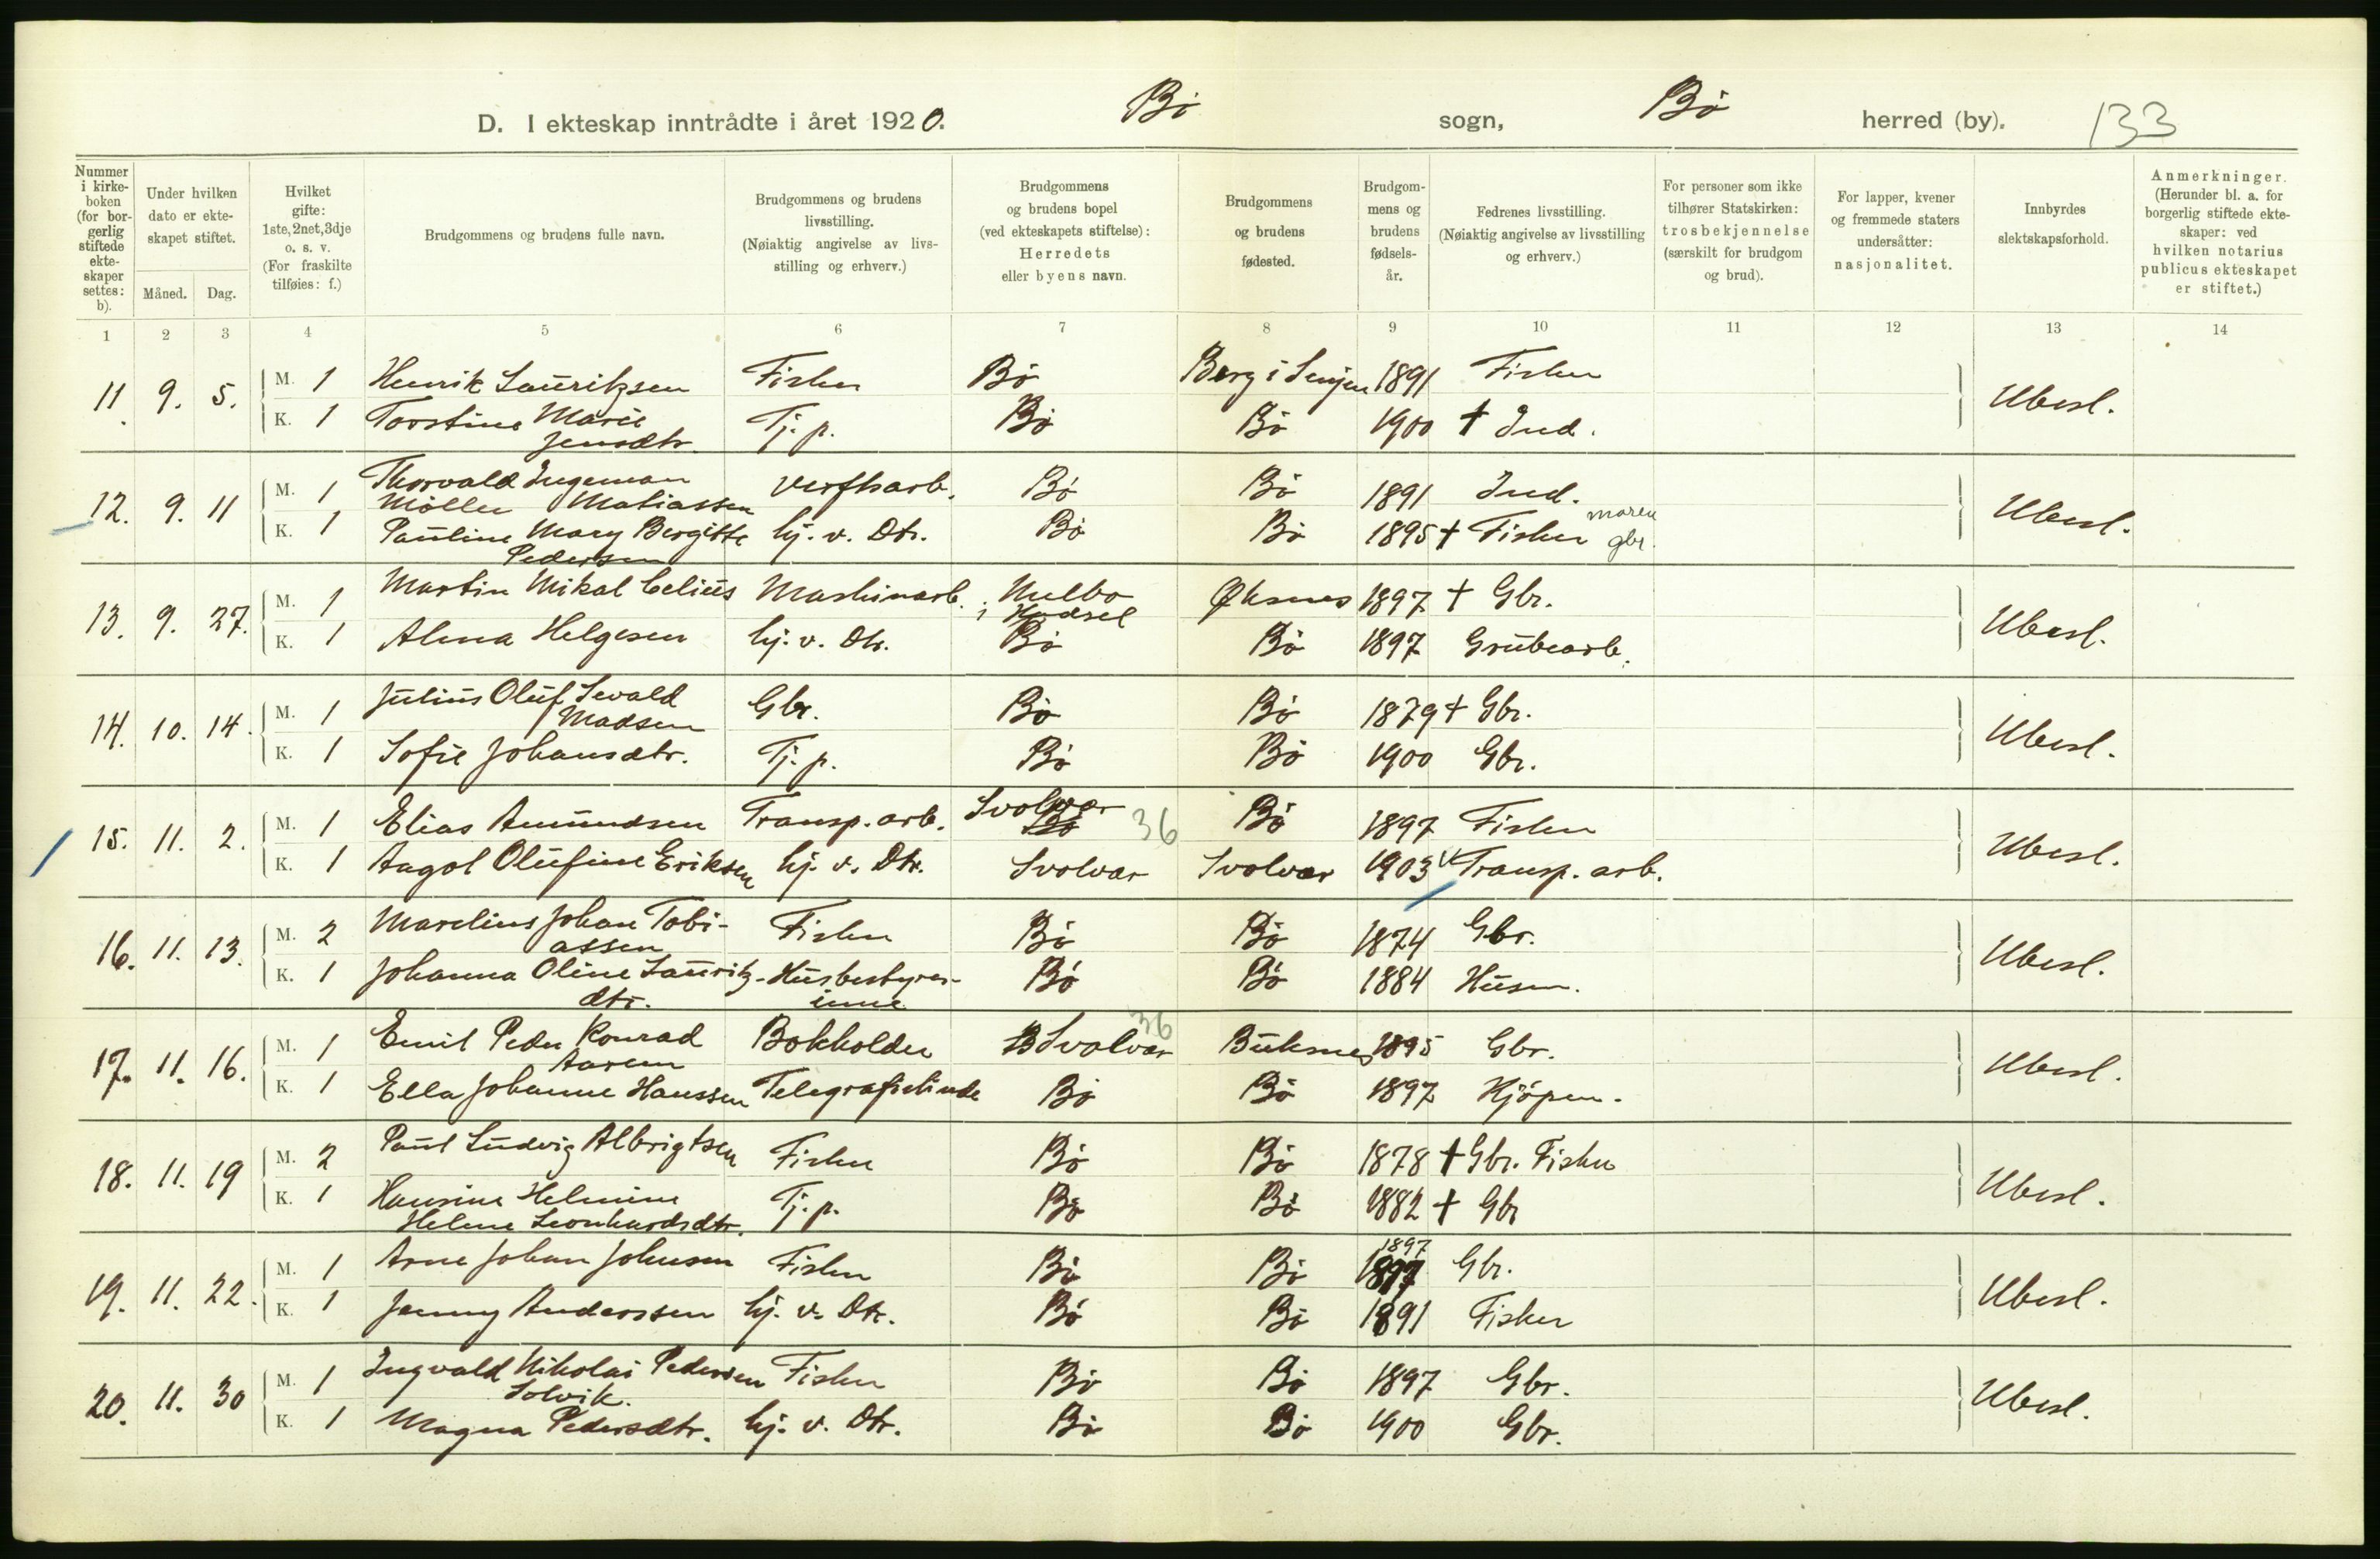 D. I ekteskap inntrådte i året 1920. Bø sogn, Bø herred (by). 133
Nummer i kirkeboken (for borgerlig stiftede ekteskaper settes: b).
Under hvilken dato er ekteskapet stiftet.
Måned. Dag.
Hvilket gifte: 1ste, 2net, 3dje o. s. v. (For fraskilte tilføies: f.)
Brudgommens og brudens fulle navn.
Brudgommens og brudens livsstilling. (Nøiaktig angivelse av livsstilling og erhverv.)
Brudgommens og brudens bopel (ved ekteskapets stiftelse): Herredets eller byens navn.
Brudgommens og brudens fødested.
Brudgommens og brudens fødselsår.
Fedrenes livsstilling. (Nøiaktig angivelse av livsstilling og erhverv.)
For personer som ikke tilhører Statskirken: trosbekjennelse (særskilt for brudgom og brud).
For lapper, kvener og fremmede staters undersåtter: nasjonalitet.
Innbyrdes slektskapsforhold.
Anmerkninger. (Herunder bl. a. for borgerlig stiftede ekteskaper: ved hvilken notarius publicus ekteskapet er stiftet.)
1 2 3 4 5 6 7 8 9 10 11 12 13 14
11. 9. 5. M. 1 Henrik Lauritzsen Fisker Bø Berg i Senjen 1891 Fisker Ubesl.
K. 1 Torstine Marie Jensdtr. Tj. p. Bø Bø 1900 † Ind.
12. 9. 11 M. 1 Thorvald Ingeman Möller Matiassen Verftsarb. Bø Bø 1891 Ind. Ubesl.
K. 1 Pauline Mary Bergitte Pedersen hj. v. Dtr. Bø Bø 1895 † Fisker gbr.
13. 9. 27. M. 1 Martin Mikal Celius Maskinarb. Melbo i Hadsel Øksnes 1897 † Gbr. Ubesl.
K. 1 Alma Helgesen hj. v. Dtr. Bø Bø 1897 Grubearb.
14. 10. 14. M. 1 Julius Oluf Sevald Madsen Gbr. Bø Bø 1879 † Gbr. Ubesl.
K. 1 Sofie Johansdtr. Tj. p. Bø Bø 1900 Gbr.
15. 11. 2. M. 1 Elias Amundsen Transp. arb. Svolvær Bø 36 Bø 1897 Fisker Ubesl.
K. 1 Aagot Olufine Eriksen hj. v. Dtr. Svolvær Svolvær 1903 Transp. arb.
16. 11. 13. M. 2 Marelius Johan Tobiassen Fisker Bø Bø 1874 Gbr. Ubesl.
K. 1 Johanna Oline Lauritzdtr. Husbestyrerinne Bø Bø 1884 Husm.
17. 11. 16. M. 1 Emil Peder Konrad Aarem Bokholder Svolvær 36 Buksnes 1895 Gbr. Ubesl.
K. 1 Ella Johanne Hanssen Telegrafistinde Bø Bø 1897 Kjöpm.
18. 11. 19 M. 2 Paul Ludvig Albrigtsen Fisker Bø Bø 1878 † Gbr. Fisker Ubesl.
K. 1 Hansine Helmine Helene Leonhardsdtr. Tj. p. Bø Bø 1882 † Gbr
19. 11. 22. M. 1 Arne Johan Johnsen Fisker Bø Bø 1897 1897 Gbr. Ubesl.
K. 1 Jenny Anderssen hj. v. Dtr. Bø Bø 1891 Fisker
20. 11. 30 M. 1 Ingvald Nikolai Pedersen Solvik. Fisker Bø Bø 1897 Gbr. Ubesl.
K. 1 Magna Pedersdtr. hj. v. Dtr. Bø Bø 1900 Gbr.